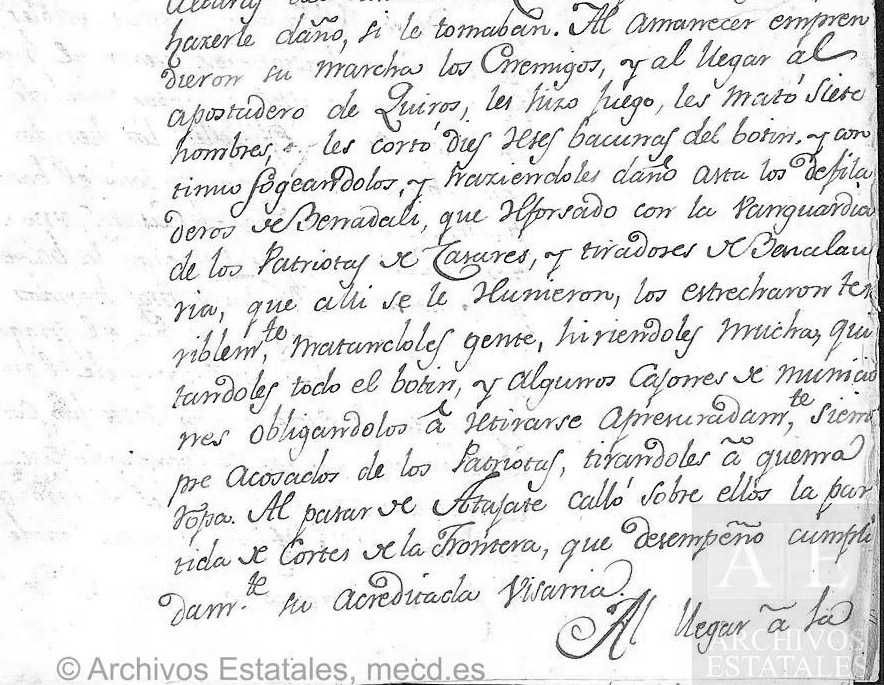 hazerle daño, si le tomaban. Al amanecer empren
dieron su marcha los Enemigos, y al llegar al
apostadero de Quiros, les hizo fuego, les mató siete
hombres, les cortó dies reses bacunas del botin, y con
tinuo fogeandolos, y haziendoles daño asta los desfila
deros de Benadali, que reforsado con la Vanguardia
de los Patriotas de y tiradores de Benalau
ria, que alli se le reunieron, los estrecharon ter
riblemte, matandoles gente, hiriendoles mucha, qui
tandoles todo el botin, y algunos Cajones de municio
nes obligandolos á retirarse apresuradamte, siem
pre acosados de los Patriotas, tirandoles á quema
ropa. Al pasar de Atajate calló sobre ellos la par
tida de Cortes de la Frontera, que desempeño cumpli
damte su acreditada Visarria.
Al llegar á la
ARCHIVOS
ESTATALES
© Archivos Estatales, mecd.es